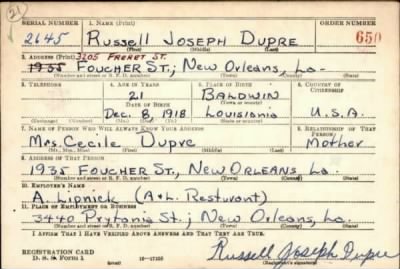 21
SERIAL NUMBER 1. NAME (Print) ORDER NUMBER
2645 RUSSELL JOSEPH DUPRE 650
(First) (Middle) (Last)
2. ADDRESS (Print) 3205 FRERET ST.
1935 FOUCHER ST.; NEW ORLEANS, LA-
(Number and street or R. F. D. number) (Town) (County) (State)
3. TELEPHONE 4. AGE IN YEARS 5. PLACE OF BIRTH 6. COUNTRY OF CITIZENSHIP
21 BALDWIN
DATE OF BIRTH (Town or county)
Dec. 8, 1918 Louisiania U.S.A.
(Exchange) (Number) (Mo.) (Day) (Yr.) (State or country)
7. NAME OF PERSON WHO WILL ALWAYS KNOW YOUR ADDRESS 8. RELATIONSHIP OF THAT PERSON
Mrs. Cecile Dupre Mother
(Mr., Mrs., Miss) (First) (Middle) (Last)
9. ADDRESS OF THAT PERSON
1935 FOUCHER ST., NEW ORLEANS La.
(Number and street or R. F. D. number) (Town) (County) (State)
10. EMPLOYER'S NAME
A. Lipnick (A+L. Resturant)
11. PLACE OF EMPLOYMENT OR BUSINESS
3440 Prytania St.; New Orleans, La.
(Number and street or R. F. D. number) (Town) (County) (State)
I AFFIRM THAT I HAVE VERIFIED ABOVE ANSWERS AND THAT THEY ARE TRUE.
REGISTRATION CARD
D. S. S. FORM 1 16-17105 Russell Joseph Dupre